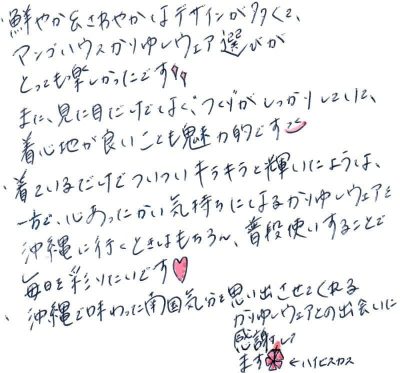 ・鮮やか&さわやかなデザインが多くて、
マンゴハウスかりゆしウェア選びが
とっても楽しかったです!!
また、見た目だけではなく、つくりがしっかりしていて、
着心地が良いことも魅力的です
・着ているだけでついついキラキラと輝いたような、
一方で、心あったかい気持ちになるかりゆしウェアを
沖縄に行くときはもちろん、普段使いすることで
毎日を彩りたいです
・沖縄で味わった南国気分を思い出させてくれる
かりゆしウェアとの出会いに
感謝して
ます ←ハイビスカス